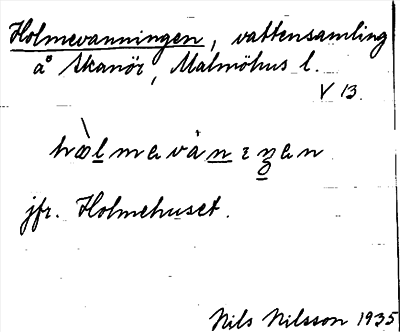 Holmevanningen, vattensamling
å Skanör, Malmöhus l.
V 13.
hòlmavànɪŋan
jfr. Holmehuset.
Nils Nilsson 1935